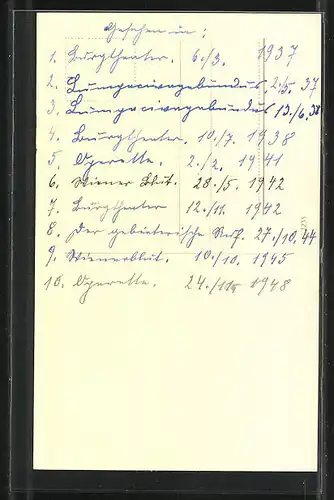 Gesehen in:
1. Burgtheater. 6./3. 1937
2. Lumpacivagabundus 2./5. 37
3. Lumpacivagabundus 13./6. 38
4. Burgtheater. 10./7. 1938
5. Operette. 2./2. 1941
6. Wiener Blut. 28./5. 1942
7. Burgtheater 12./11. 1942
8. Der gebieterische Ruf. 27./10. 44
9. Wienerblut. 10./10. 1945
10. Operette. 24./11. 1948